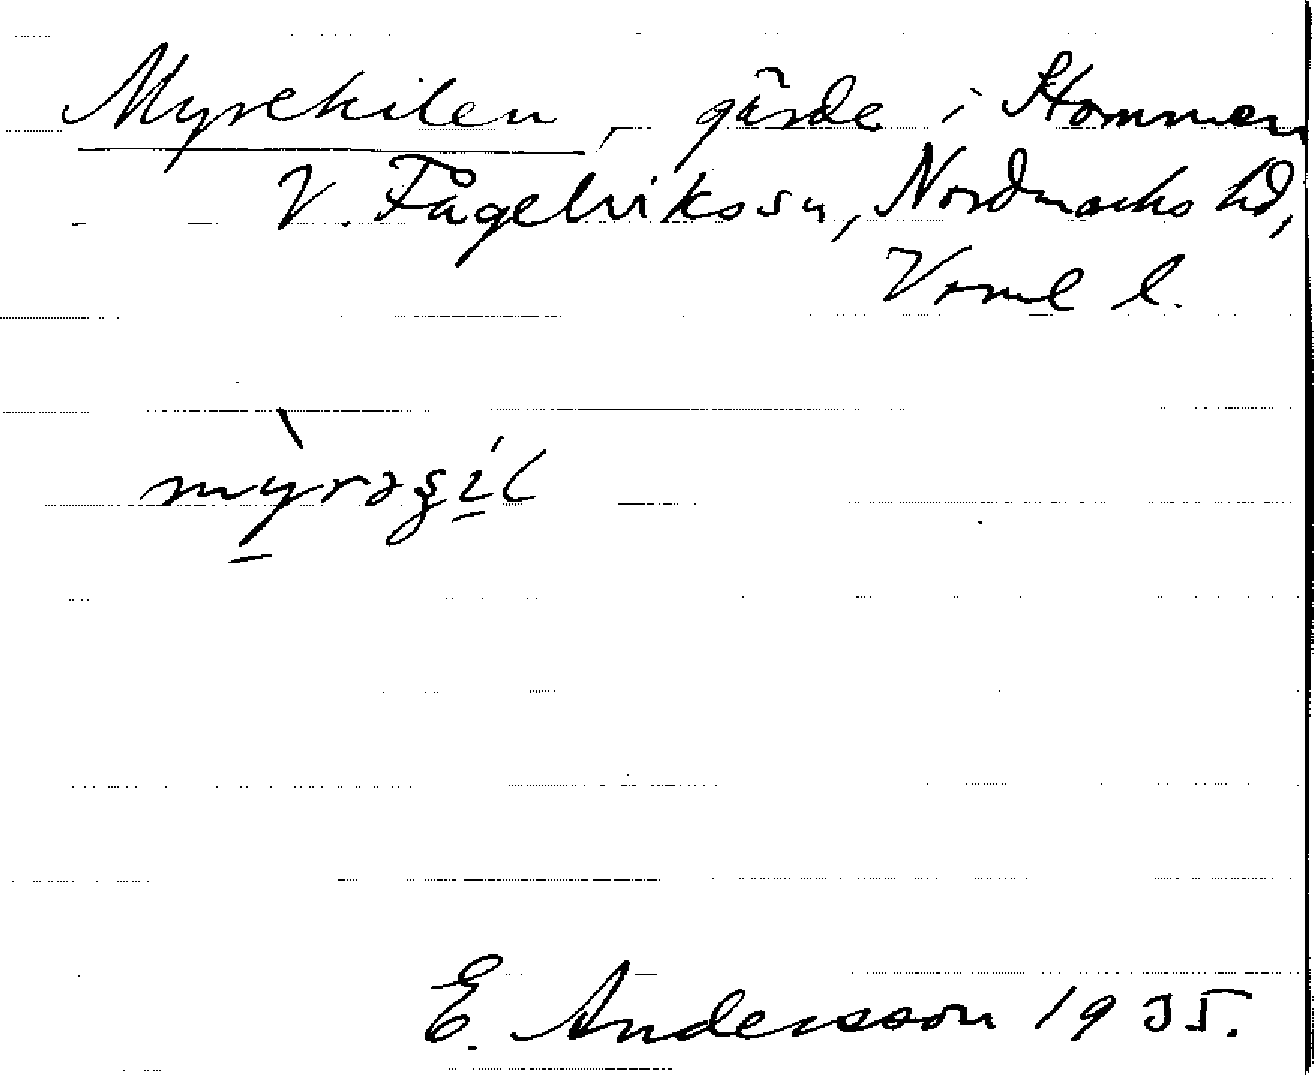 Myrekilen, gärde i Stommen
V. Fågelvik ssn, Nordmarks hd,
Verml l.
E. Andersson 1935.